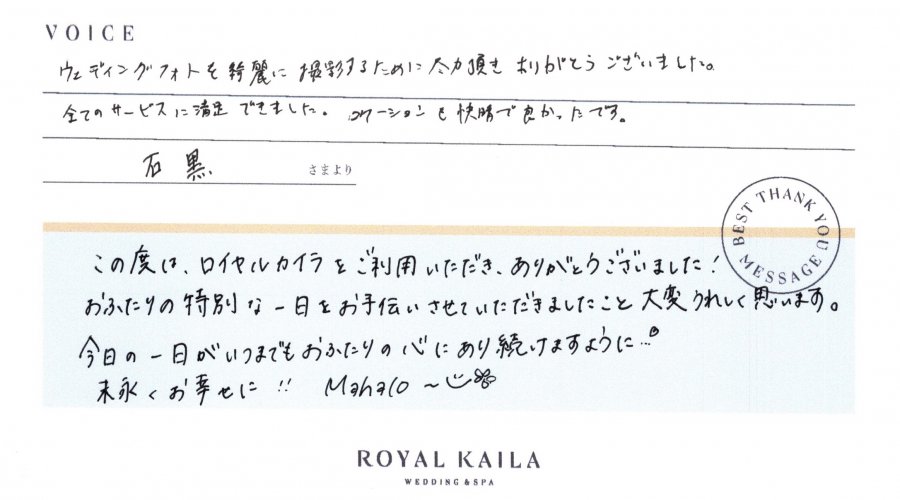 VOICE
ウェディングフォトを綺麗に撮影するために尽力頂きありがとうございました。
全てのサービスに満足できました。ロケーションも快晴で良かったです。
石黒 さまより
BEST THANK YOU MESSAGE
この度は、ロイヤルカイラをご利用いただき、ありがとうございました!
おふたりの特別な一日をお手伝いさせていただきましたこと大変うれしく思います。
今日の一日がいつまでもおふたりの心にあり続けますように…。
末永くお幸せに!! Mahalo〜
ROYAL KAILA
WEDDING & SPA